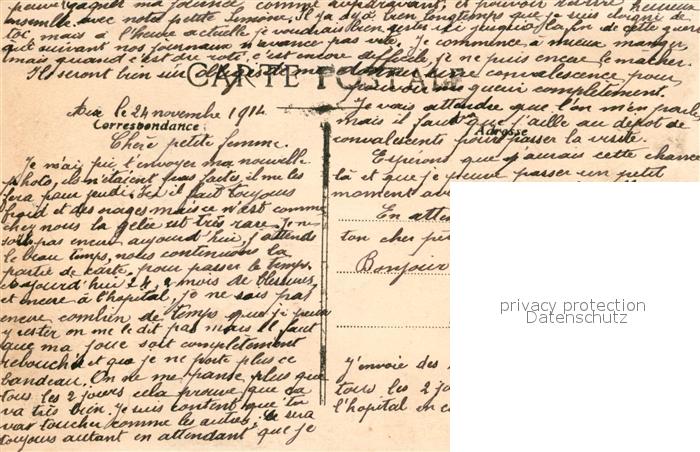 peuve gagner ma journée comme auparavant, et pouvoir vivre heureux
ensemble avec notre petite Simone. Il y a déjà bien longtemps que je suis éloigné de
toi, mais à l'heure actuelle je voudrais bien rester ici jusqu'à la fin de cette guerre
que suivant nos journaux n'avance pas vite. Je commence à mieux manger
mais quand c'est du rôti, c'est encore difficile, je ne puis encore le mâcher.
Ils seront bien sûr obligés de me donner une convalescence pour
CARTE POSTALE
pouvoir me guérir complètement.
Aix le 24 novembre 1914
Correspondance
Chère petite femme.
Je n'ai pu t'envoyer ma nouvelle
photo, ils n'étaient pas faites, il me les
fera pour jeudi. Ici il fait toujours
froid et des orages mais ce n'est comme
chez nous la gelée est très rare. Je ne
sors pas encore aujourd'hui, j'attends
le beau temps, nous continuons la
partie de carte, pour passer le temps.
Aujourd'hui 24, 2 mois de blessures,
et encore à l'hôpital, je ne sais pas
encore combien de temps que je peux
y rester on me le dit pas mais il faut
que ma joue soit complètement
rebouchée et que je ne porte plus ce
bandeau. On ne me panse plus que
tous les 2 jours cela prouve que ça
va très bien. Je suis content que tu
vas toucher comme les autres, ce sera
toujours autant en attendant que je
Je vais attendre que l'on m'en parle
mais il faut que j'aille au dépôt de
Adresse
convalescents pour passer la visite.
Espérons que j'aurais cette chance
là et que je puisse passer un petit
moment av
En atten
ton cher pe
Bonjour
J'envoie des
tous les 2 jo
l'hôpital en c
privacy protection
Datenschutz